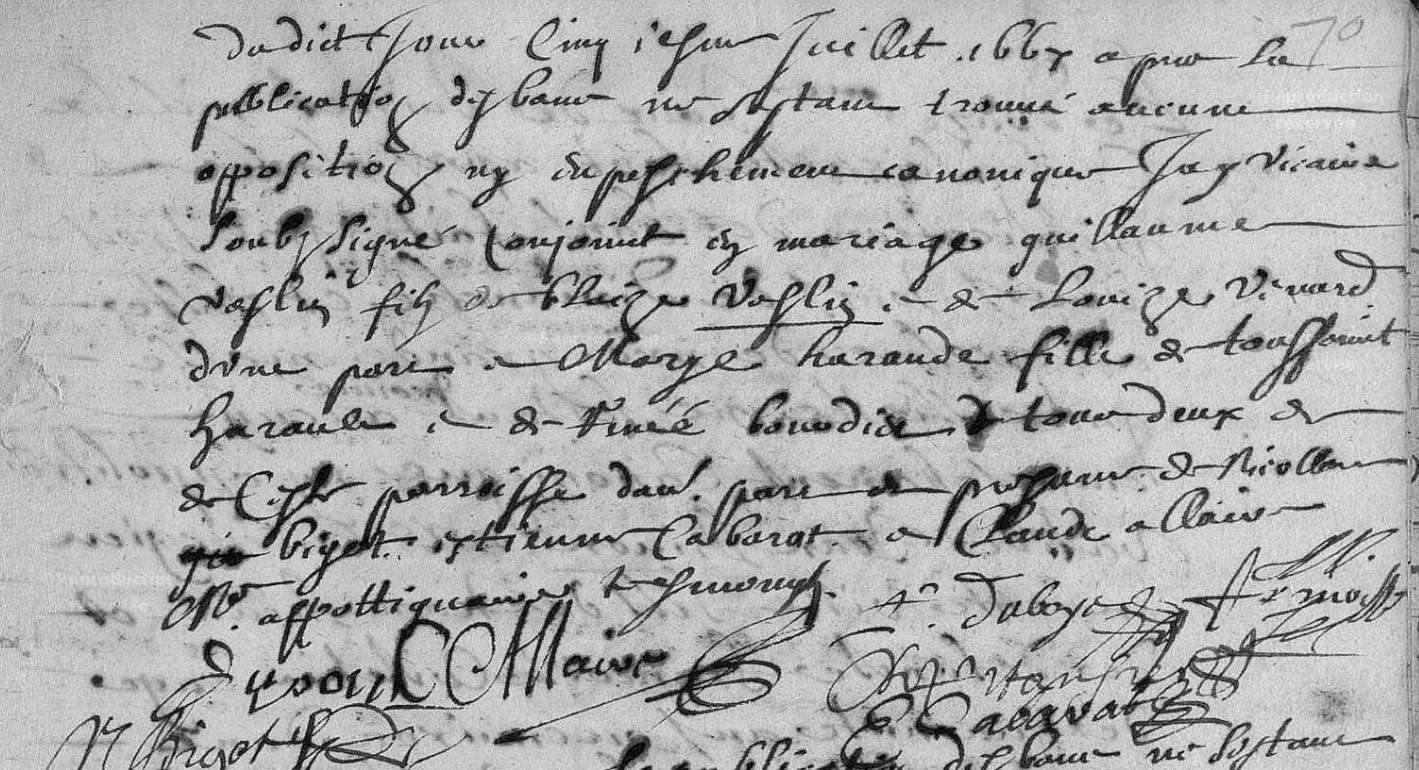 70
Dudict Jour Cinq iesme Juillet 1667 apres la
publication des bans ne sestant trouvé aucune
opposition ny enpeschement canonique Jay vicaire
soubzsigné conjoint en mariage guillaume
veslin filz de blaize veslin e de Louize venard
dune part e Marye haraude fille de toussaint
harault e de Renée bourdin tous deux de
de ceste parroisse dau. part en presence de Nicollas
bigot estienne Cabarat e Claude allaire
Me. appottiquaire tesmoings.
CAllaire
N Bigot
E Cabarat
publication des bans ne sestant